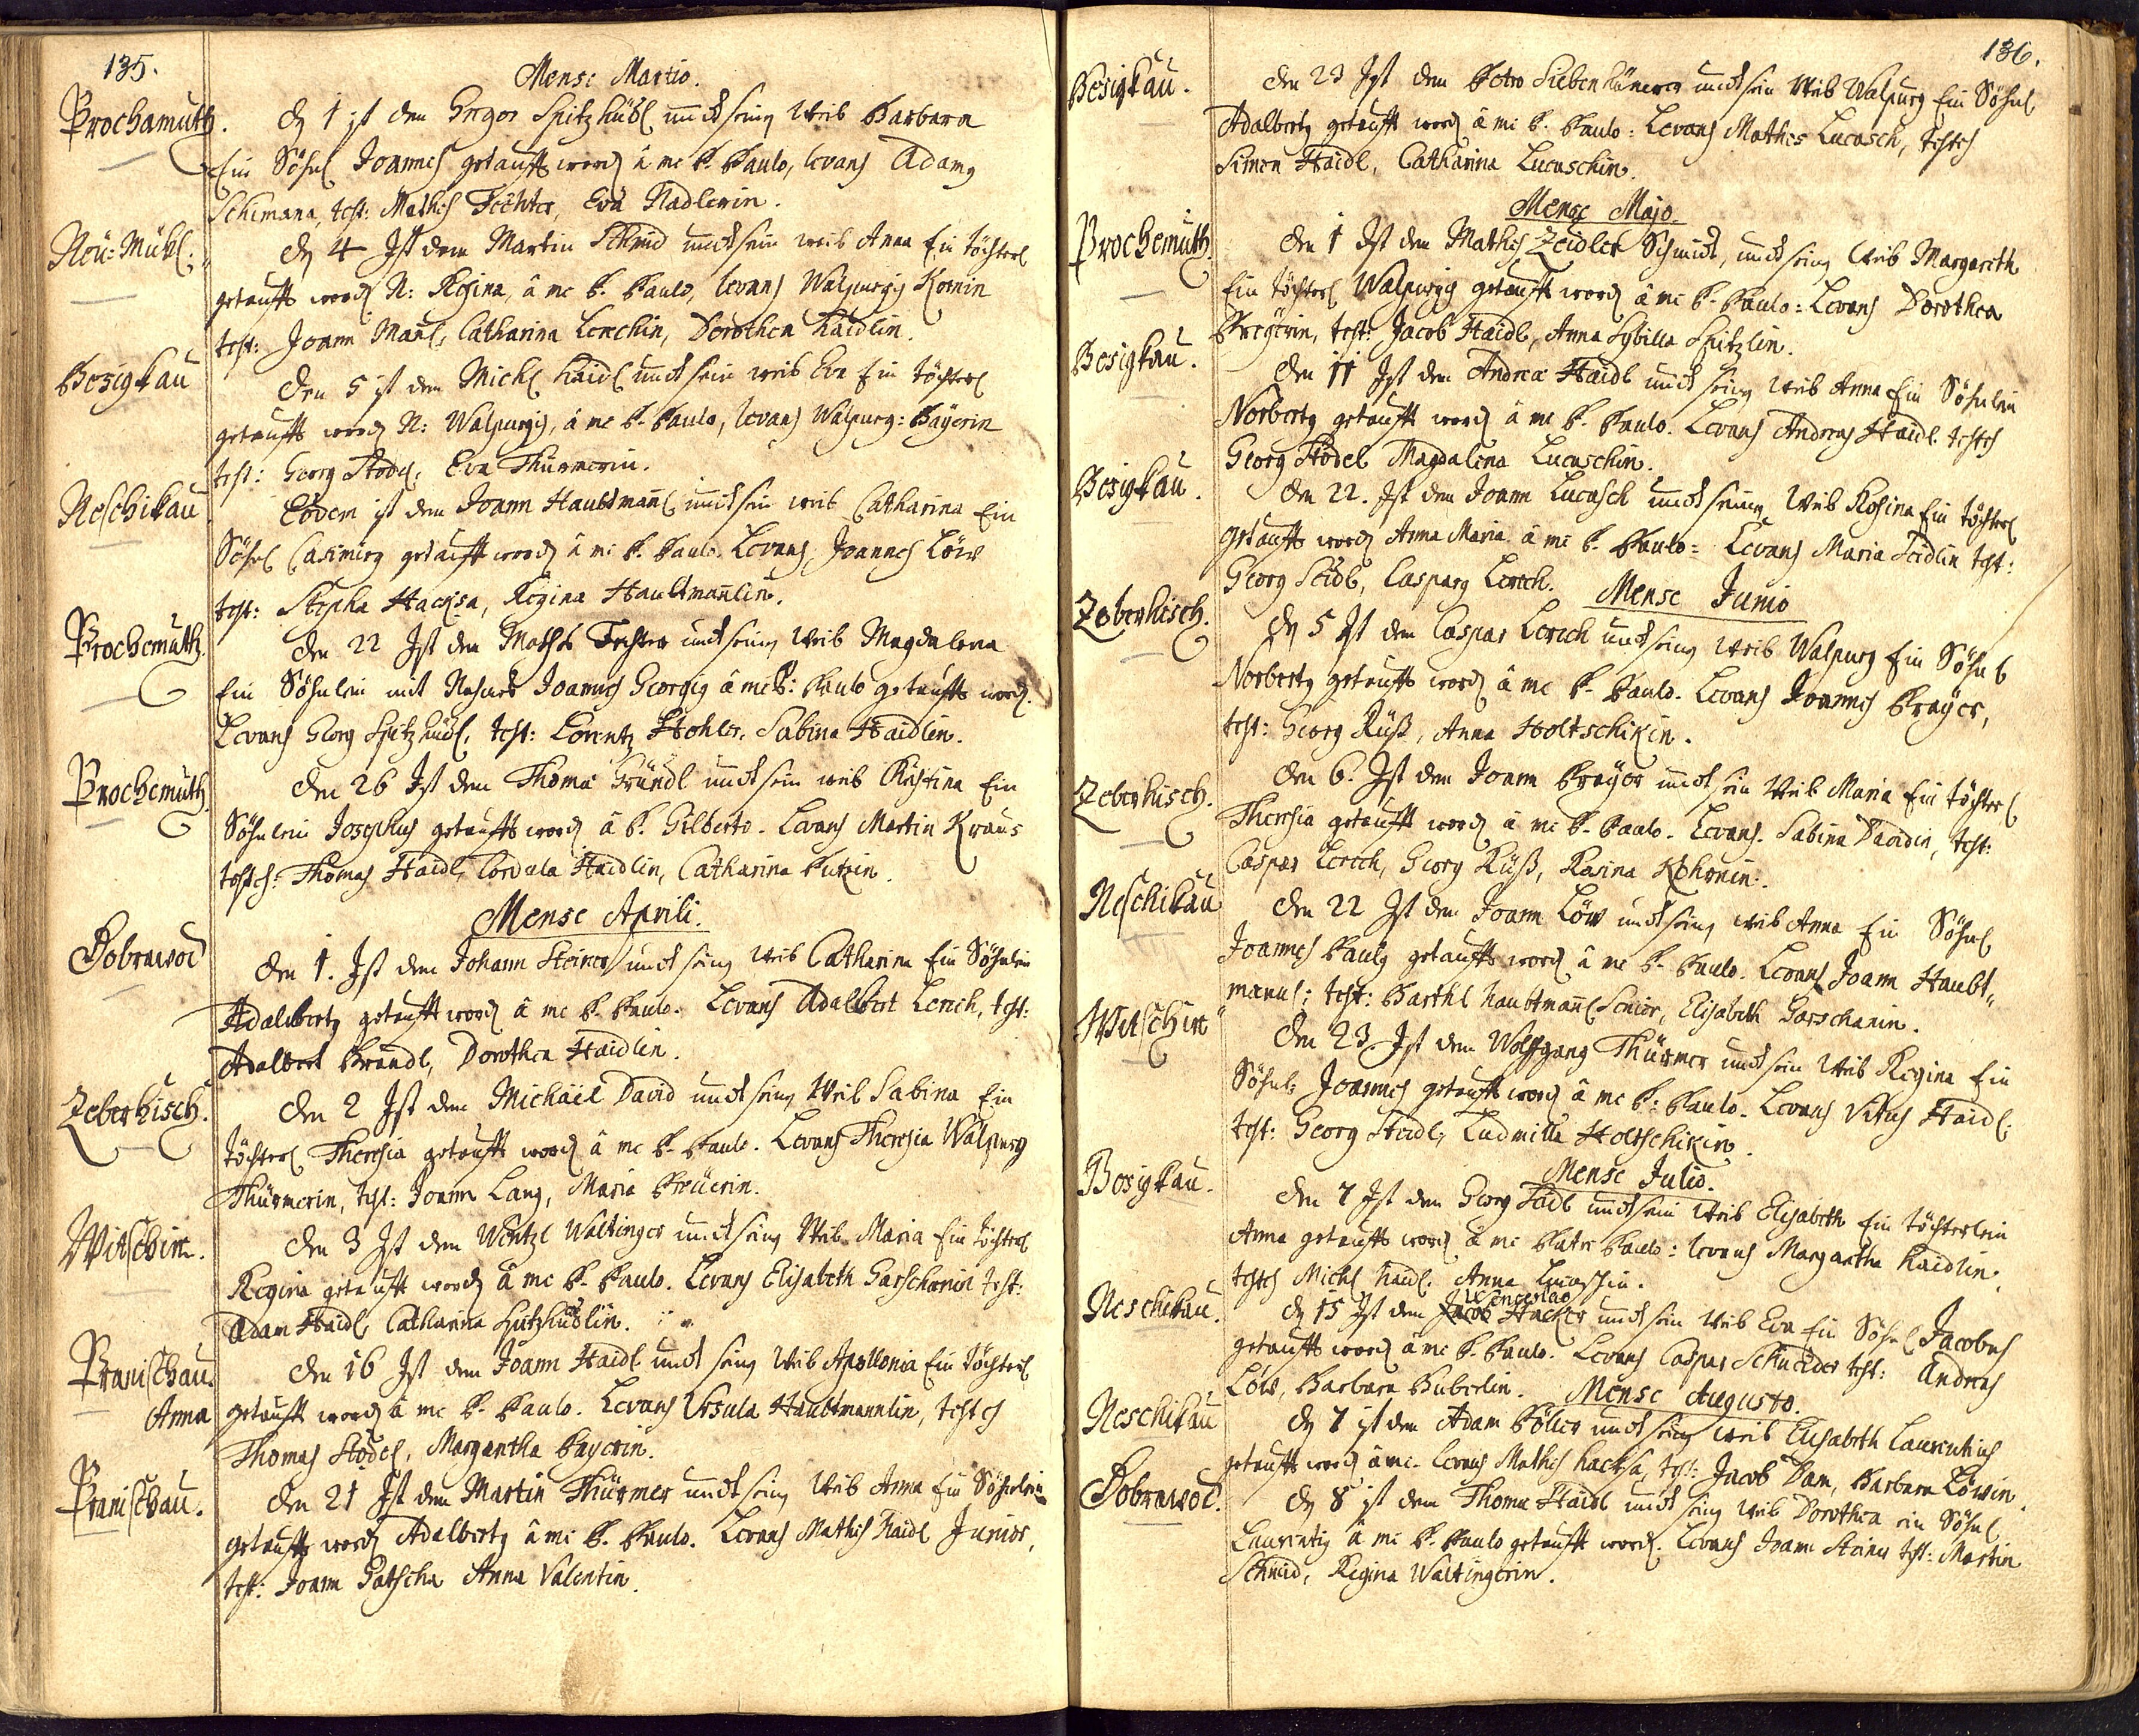 135.
Mense Martio.
Prochamuth. Dẽ 1 ist dem Gregor Spitzhübl undt seinẽ Weib Barbara
Ein Söhnl Joannes getaufft wordẽ â me P. Paulo, levans Adamg
Schimana, test: Mathes Fechter, Eva Nadlerin.
Neu: Mühl: Dẽ 4 Ist dem Martin Schmid undt sein weib Anna Ein töchterl
getaufft wordẽ N: Regina, â me P. Paulo, levans Walpurgis
test: Joann Mañl, Catharina Lerchin, Dorothea Haidlin.
Bosigkau Den 5 ist dem Michl Haidl undt sein weib Eva Ein töchterl
getaufft wordẽ N: Walpurgis, â me P. Paulo, levans Walpurg: Bayerin
test: Georg Stödl, Eva Thürmerin.
Neschikau Eodem ist dem Joann Haubtmañl undt sein weib Catharina Ein
Söhnl Casimirg getaufft wordẽ â me P. Paulo. Levans Joannes Löw
test: Stepha Hacksa, Regina Haubtmañlin.
Prochemuth. Den 22 Ist dem Mathes Fechter undt seinẽ Weib Magdalena
Ein Söhnlein mit Nahmen Joannes Georgig â me P: Paulo getaufft wordẽ.
Levans Georg Spitzhübl, test: Lorentz Hohler, Sabina Haidlin.
Prochemuth. Den 26 Ist dem Thoma Gründl undt sein weib Christina Ein
Söhnlein Josephus getaufft wordẽ â P. Gilberto. Levans Martin Kraus
testes: Thomas Haidl, Cordula Haidlin, Catharina
Mense Aprili.
Dobrawod Den 1. Ist dem Johann Steiner undt seinẽ Weib Catharina Ein Söhnlein
Adalbertg getaufft wordẽ â me P. Paulo. Levans Adalbert Lerch, test:
Adalbert Brandl, Dorothea Haidlin.
Zeberhisch. Den 2 Ist dem Michäel David undt seinẽ Weib Sabina Ein
töchterl Theresia getaufft wordẽ â me P. Paulo. Levans Theresia Walpurg
Thürmerin, test: Joann Lang, Maria Preüerin.
Witschin. Den 3 Ist dem Wentzl Waltinger undt seinẽ Weib Maria Ein töchterl
Regina getaufft wordẽ â me P. Paulo. Levans Elisabeth Garschanin test:
Adam Haidl, Catharina Spitzhüblin.
Pranischau. Den 16 Ist dem Joann Haidl undt seinẽ Weib Apollonia Ein töchterl
Anna getaufft wordẽ â me P. Paulo. Levans Ursula Haubtmannlin, testes
Thomas Stödl, Margaretha Payerin.
Pranischau. Den 21 Ist dem Martin Thürmer undt seinẽ Weib Anna Ein Söhnlein
getaufft wordẽ Adalbertg â me P. Paulo. Levans Mathes Haidl Junior,
test: Joann Gatscha Anna Valentin.
136.
Bosigkau. Den 23 Ist dem Petro undt sein Weib Walpurg Ein Söhnl
Adalbertg getaufft wordẽ â me P. Paulo: Levans Mathes Lucasch, testes
Simon Haidl, Catharina Lucaschin.
Mense Majo.
Prochemuth. Den 1 Ist dem Mathes Zeidler Schmidt, undt seinẽ Weib Margareth
Ein töchterl Walpurgis getaufft wordẽ â me P. Paulo: Levans Dorothea
Preÿerin, test: Jacob Haidl, Anna Sybilla Spitzlin.
Bosigkau. Den 11 Ist dem Andrea Haidl undt seinẽ Weib Anna Ein Söhnlein
Norbertg getaufft wordẽ â me P. Paulo. Levans Andreas Haidl testes
Georg Stödel Magdalena Lucaschin.
Bosigkau. Den 22. Ist dem Joann Lucasch undt seinem Weib Rosina Ein töchterl
getaufft wordẽ Anna Maria â me P. Paulo: Levans Maria Seidlin test:
Georg Seidl, Casparg Lerch.
Mense Junio
Zeberhisch. Dẽ 5 Ist dem Caspar Lerch undt seinẽ Weib Walpurg Ein Söhnl
Norbertg getaufft wordẽ â me P. Paulo. Levans Joannes Prayer,
test: Georg Rüß, Anna Holtschikin.
Zeberhisch. Den 6. Ist dem Joann Prayer undt sein Weib Maria Ein töchterl
Theresia getaufft wordẽ â me P. Paulo. Levans. Sabina Davidin, test:
Caspar Lerch, Georg Rüß, Rosina
Neschikau Den 22 Ist dem Joann Löw undt seinẽ weib Anna Ein Söhnl
Joannes Paulg getaufft wordẽ â me P. Paulo. Levans Joann Haubt„
mannl; test: Barthl Haubtmañl Senior, Elisabeth Garschanin.
Witschin Den 23 Ist dem Wolffgang Thürmer undt sein Weib Regina Ein
Söhnl: Joannes getaufft wordẽ â me P: Paulo. Levans Vitus Haidl;
test: Georg Haidl, Ludmilla Holtschikin.
Mense Julio.
Bosigkau. Den 7 Ist dem Georg Seidl undt sein Weib Elisabeth Ein töchterlein
Anna getaufft wordẽ â me Patre Paulo: levans Margaretha Haidlin.
testes Michl Haidl. Anna Lucaschin.
Neschikau. Dẽ 15 Ist dem Jacob Wenceslao Hacker undt sein Weib Eva Ein Söhnl Jacobus
getaufft wordẽ â me P. Paulo. Levans Caspar Schneider test: Andreas
Löw, Barbara Huberlin.
Mense Augusto.
Neschikau Dẽ 7 ist dem Adam Pöller undt seinẽ weib Elisabeth Laurentius
getaufft wordẽ â me. Levans Mathes Hacksa, test: Jacob Dam, Barbara Löwin.
Dobrawod. Dẽ 8 ist dem Thoma Haidl undt seinẽ Weib Dorothea ein Söhnl
Laurentig â me P. Paulo getaufft wordẽ. Levans Joann Steiner test: Martin
Schmid, Regina Waltingerin.